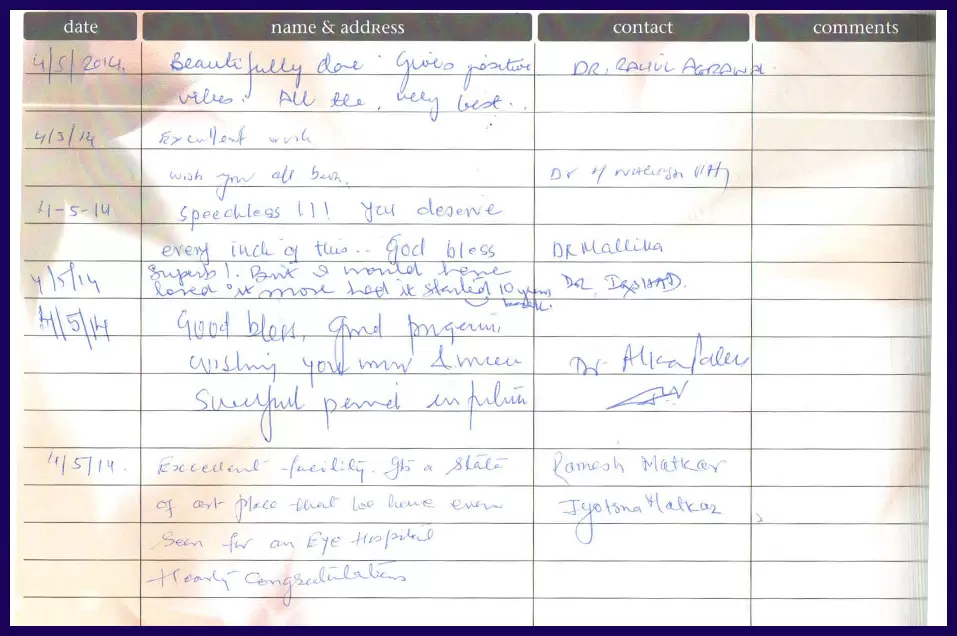 date name & address contact comments
4/5/2014. Beautifully done. Gives positive DR. RAHUL AGRAWAL.
vibes. All the very best..
4/3/14 Excellent work
wish you all best. Dr
4-5-14 Speechless !!! You deserve
every inch of this... God bless DR Mallika
4/5/14 Superb! But I would have
loved it more had it started 10 years Dr. IRSHAD.
4/5/14 Good bless, Good
wishing you more & more Dr. Alka
Successful period in future
4/5/14. Excellent facility. Its a state Ramesh Matkar
of art place that we have ever Jyotsna Matkar
seen for an Eye Hospital
Hearty Congratulations